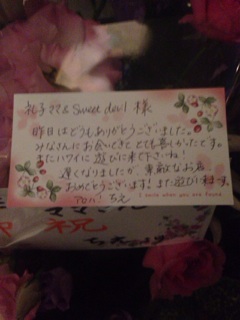 礼子ママ& Sweet devil 様
昨日はどうもありがとうございました。
みなさんにお会いできて とても楽しかったです。
またハワイに遊びに来て下さいね!
遅くなりましたが、素敵なお店
おめでとうございます! また遊びに来ます。
I smile when you are found
祝